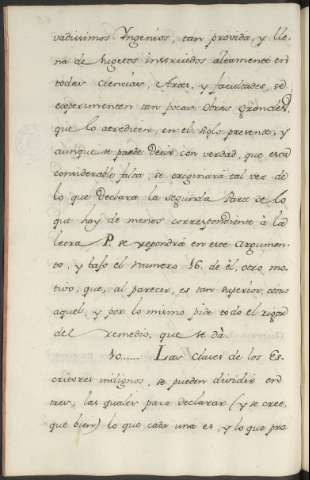 vadissimos Yngenios, tan provida, y lle-
na de sugetos instruidos altamente en
todas ciencias, Artes, y facultades, se
experimenten tan pocas Obras grandes,
que lo acrediten, en el siglo presente, y
aunque se puede decir con verdad, que esta
considerable falta, se originará tal vez de
lo que declara la segunda Parte de lo
que hay de menos correspondiente à la
letra P. se expondrà en este Argumen-
to, y bajo el numero 16. de èl, otro mo-
tivo, que, al parecer, es tan superior, como
aquel, y por lo mismo pide todo el rigor
del remedio, que se dà.
10..... Las Clases de los Es-
critores indignos, se pueden dividir en
tres, las quales para declarar (y se cree,
que bien) lo que cada una es, y lo que pro